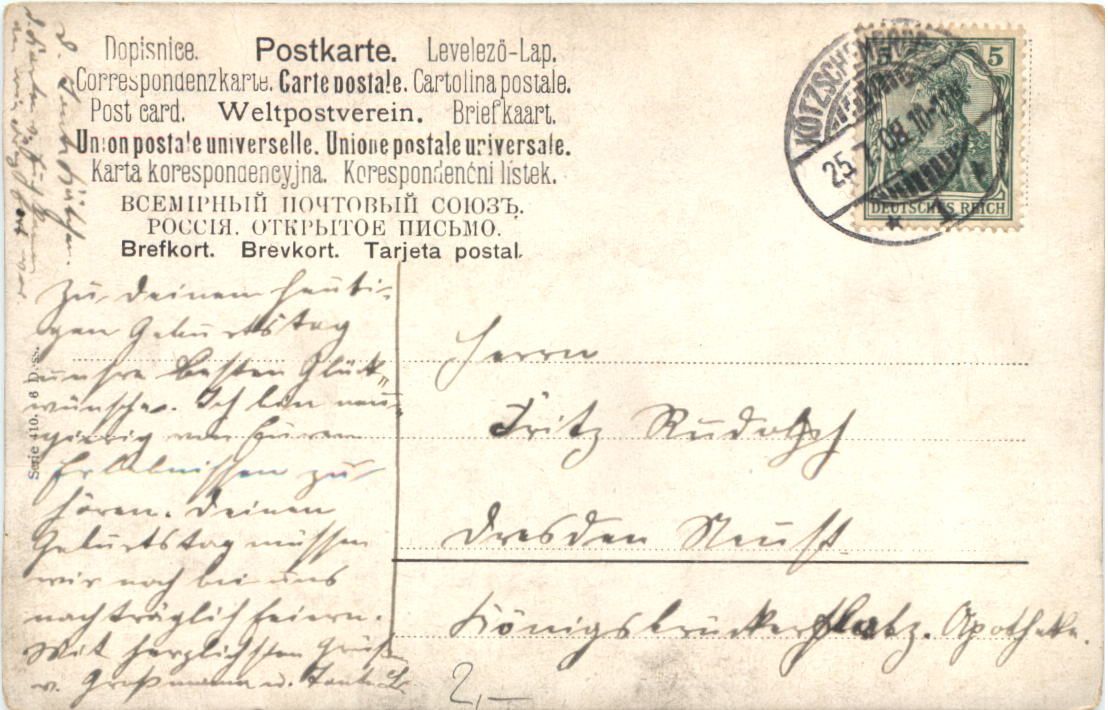 Dopisnice. Postkarte. Levelező-Lap.
Correspondenzkarte. Carte postale. Cartolina postale.
Post card. Weltpostverein. Briefkaart.
Union postale universelle. Unione postale universale.
Karta korespondencyjna. Korespondenční lístek.
ВСЕМІРНЫЙ ПОЧТОВЫЙ СОЮЗЪ.
РОССІЯ. ОТКРЫТОЕ ПИСЬМО.
Brefkort. Brevkort. Tarjeta postal.
5 5
DEUTSCHES REICH
KÖTZSCHENBRODA
25.7.08.10-11V.
* 1
Zu deinem heuti-
gen Geburtstag
unsre besten Glück-
wünsche. Ich bin neu-
gierig von Euren
Erlebnissen zu
hören. Deinen
Geburtstag müssen
wir noch bei uns
nachträglich feiern.
Mit herzlichsten Grüßen
v. Großmama u. Tante
Herrn
Fritz Rudolph
Dresden Neust.
Königsbrückerplatz. Apotheke.
Serie 410. 6 Dess.
2,-